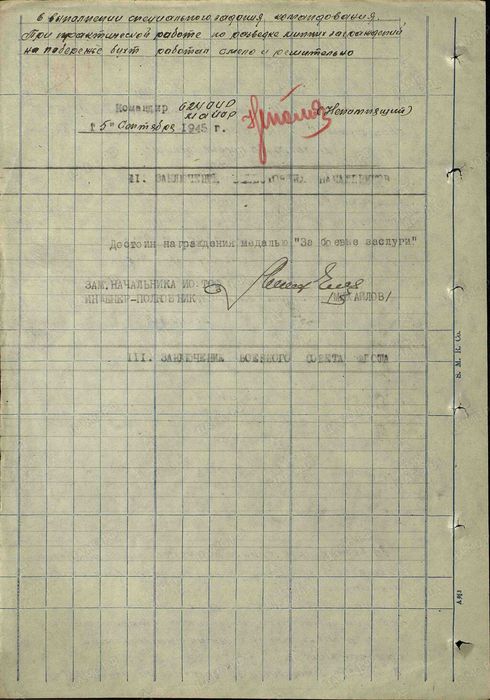 в выполнении специального задания командования.
При практической работе по разведке минных заграждений
на побережье бухт работал смело и решительно
Командир
майор
(Непомнящий)
"5" Сентября 1945 г.
II. ЗАКЛЮЧЕНИЕ НАЧАЛЬНИКОВ
Достоин награждения медалью "За боевые заслуги"
ЗАМ.НАЧАЛЬНИКА ИО ТОФ
ИНЖЕНЕР-ПОЛКОВНИК
/МИХАЙЛОВ/
III. ЗАКЛЮЧЕНИЯ ВОЕННОГО СОВЕТА ФЛОТА